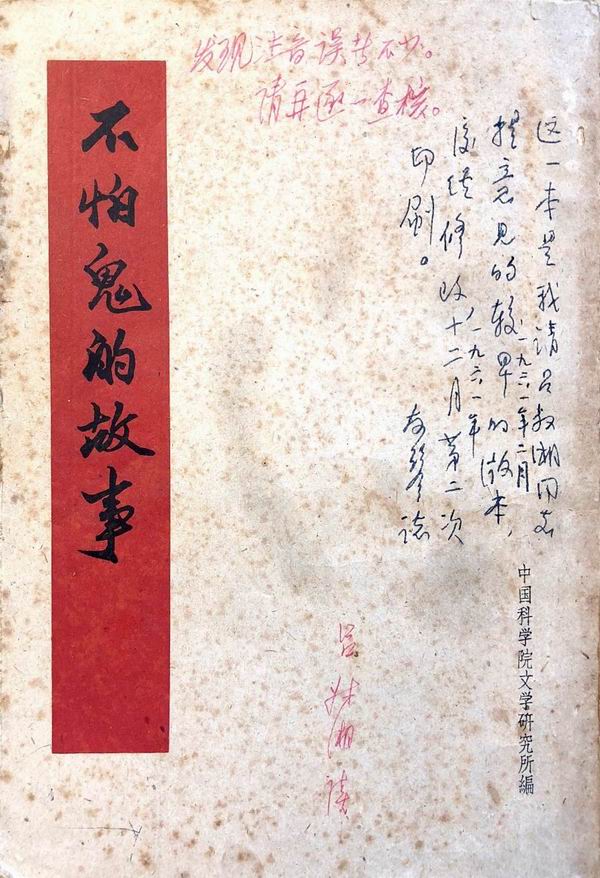 不怕鬼的故事
发现注音误者不少。
请再逐一查核。
这一本是我请吕叔湘同志
一九六一年二月
提意见的较早的版本，
一九六一年
後经修改十二月第二次
印刷。
友琴志
吕叔湘读
中国科学院文学研究所編